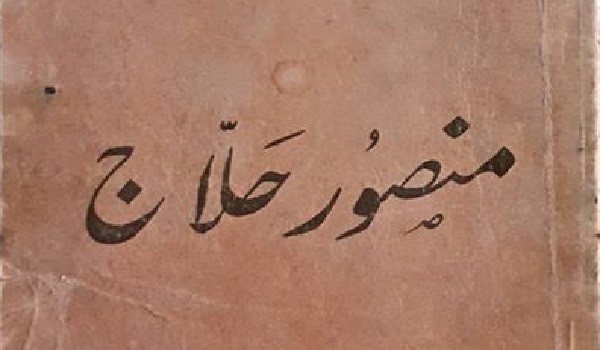 منصُور حَلّاج